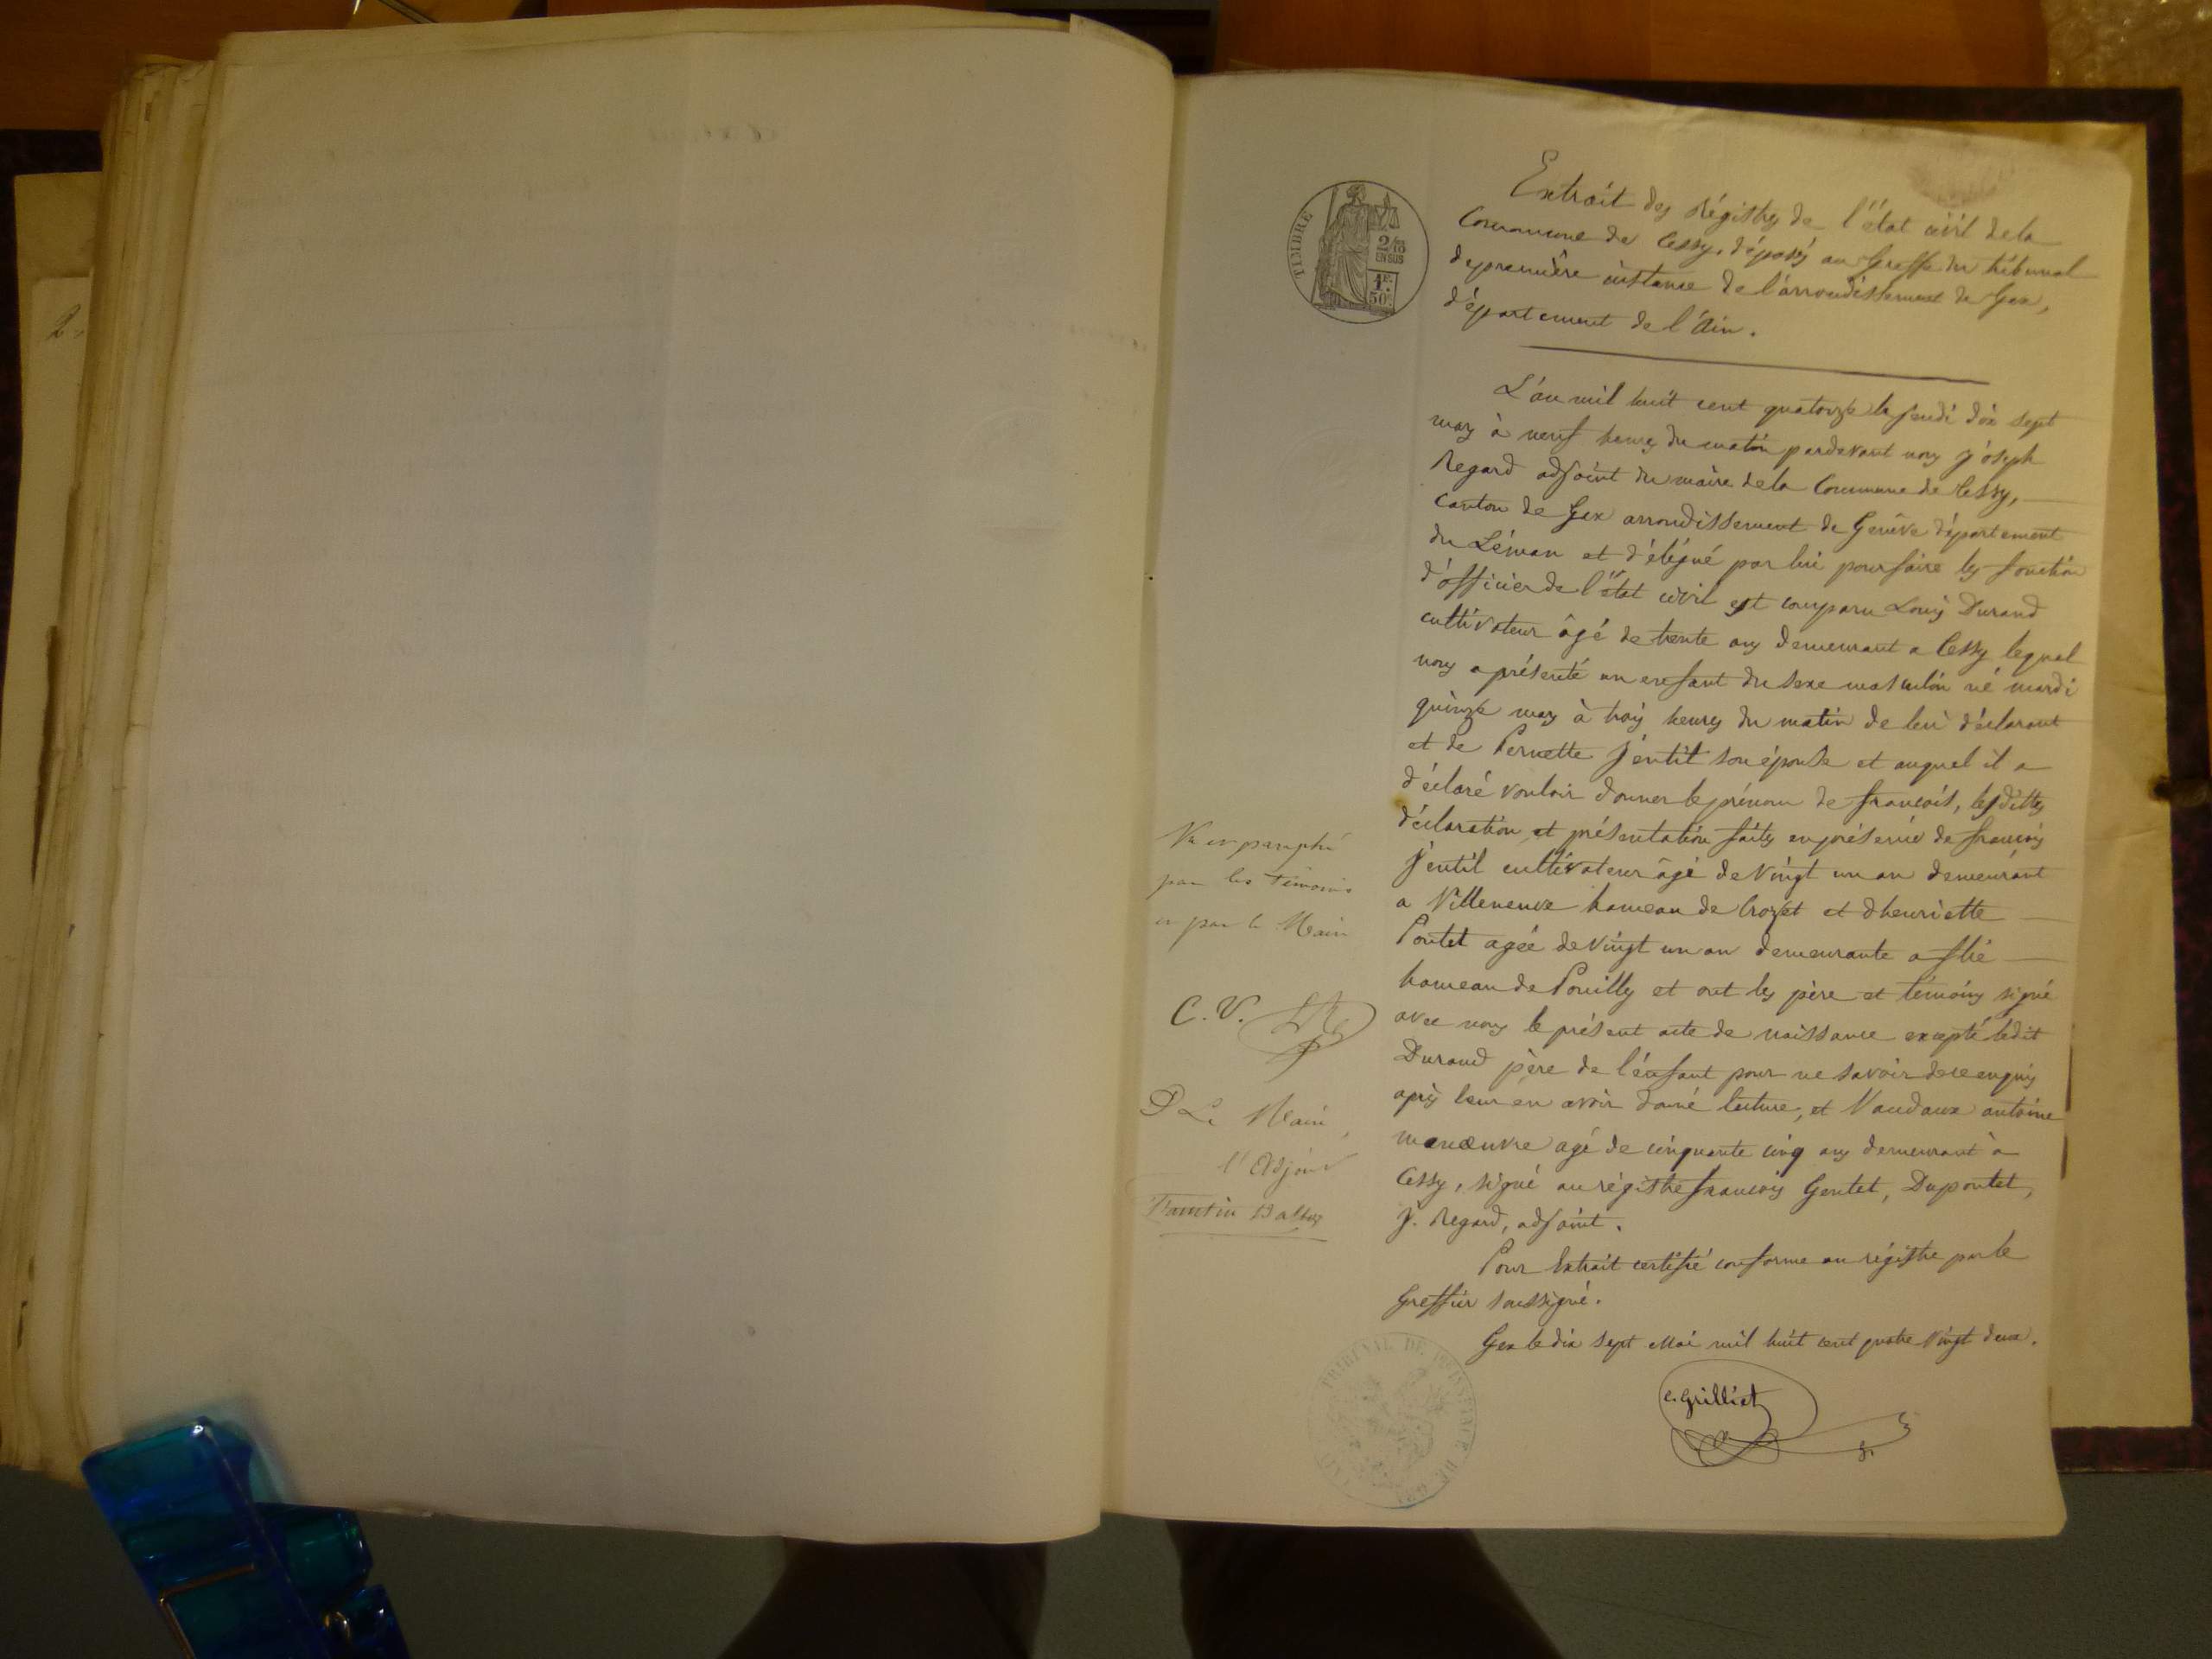 TIMBRE
2/10
EN SUS
1F.
50c.
Extrait des Régistres de l'état civil de la
Commune de Cessy, déposés au Greffe du tribunal
de première instance de l'arrondissement de Gex,
département de l'Ain.
L'an mil huit cent quatorze le jeudi dix sept
mars à neuf heures du matin pardevant nous joseph
Regard adjoint du maire de la Commune de Cessy,
Canton de Gex arrondissement de Genève département
du Léman et délégué par lui pour faire les fonction
d'officier de l'état civil est comparu Louis Durand
cultivateur âgé de trente ans demeurant a Cessy lequel
nous a présenté un enfant du sexe masculin né mardi
quinze mars à trois heures du matin de lui déclarant
et de Pernette jentil son épouse et auquel il a
déclaré vouloir donner le prénom de francois, lesdittes
déclaration et présentation faites en présence de francois
jentil cultivateur âgé de vingt un an demeurant
a Villeneuve hameau de Crozet et dhenriette
Pontet agée de vingt un an demeurante a flié
hameau de Pouilly et ont les père et témoins signé
avec nous le présent acte de naissance excepté ledit
Durand père de l'enfant pour ne savoir de ce enquis
après leur en avoir donné lecture, et Vaudaux antoine
manœuvre agé de cinquante cinq ans demeurant à
Cessy, signé au régistre francois Gentet, Dupontet,
J. Regard, adjoint.
Pour Extrait certifié conforme au régistre par le
Greffier soussigné.
Gex le dix sept Mai mil huit cent quatre vingt deux.
C. Grilliet
Vu et paraphé
par les témoins
et par le Maire
C. V.
P Le Maire,
l'Adjoint
TRIBUNAL DE 1RE INSTANCE DE GEX